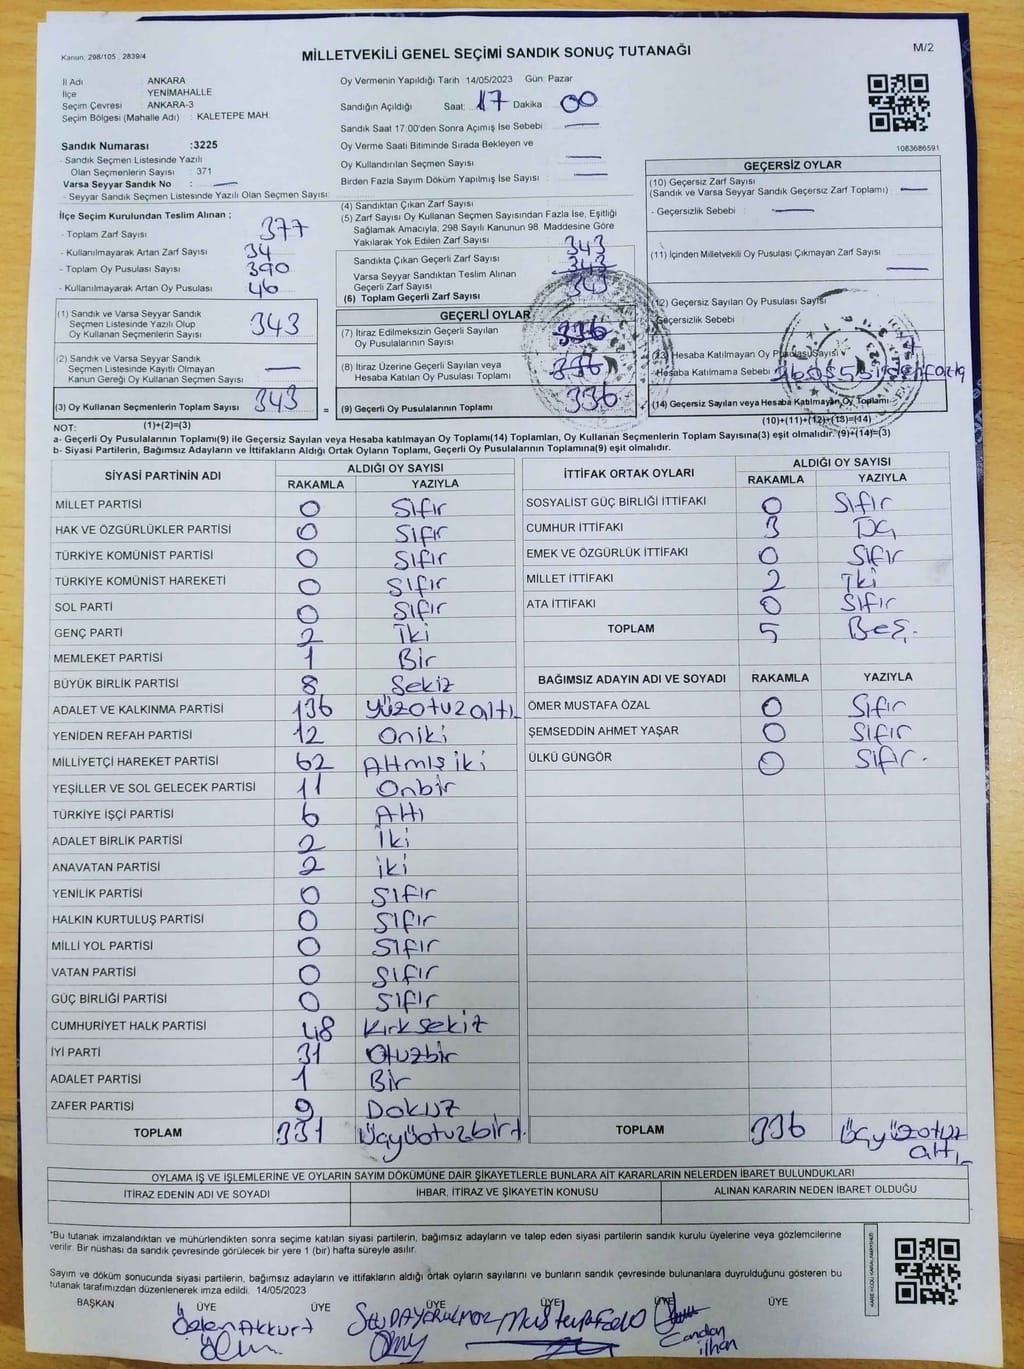 Kanun; 298/105 , 2839/4
MİLLETVEKİLİ GENEL SEÇİMİ SANDIK SONUÇ TUTANAĞI
M/2
İl Adı : ANKARA
İlçe : YENİMAHALLE
Seçim Çevresi : ANKARA-3
Seçim Bölgesi (Mahalle Adı) : KALETEPE MAH.
Oy Vermenin Yapıldığı Tarih 14/05/2023 Gün: Pazar
Sandığın Açıldığı Saat: 17 Dakika 00
Sandık Saat 17:00'den Sonra Açımış İse Sebebi —
Oy Verme Saati Bitiminde Sırada Bekleyen ve
Oy Kullandırılan Seçmen Sayısı —
Birden Fazla Sayım Döküm Yapılmış İse Sayısı —
1083686591
Sandık Numarası :3225
- Sandık Seçmen Listesinde Yazılı
Olan Seçmenlerin Sayısı : 371
Varsa Seyyar Sandık No : —
- Seyyar Sandık Seçmen Listesinde Yazılı Olan Seçmen Sayısı:
İlçe Seçim Kurulundan Teslim Alınan ;
- Toplam Zarf Sayısı 377
- Kullanılmayarak Artan Zarf Sayısı 34
- Toplam Oy Pusulası Sayısı 390
- Kullanılmayarak Artan Oy Pusulası 46
(1) Sandık ve Varsa Seyyar Sandık
Seçmen Listesinde Yazılı Olup
Oy Kullanan Seçmenlerin Sayısı 343
(2) Sandık ve Varsa Seyyar Sandık
Seçmen Listesinde Kayıtlı Olmayan
Kanun Gereği Oy Kullanan Seçmen Sayısı —
(3) Oy Kullanan Seçmenlerin Toplam Sayısı 343 =
(1)+(2)=(3)
(4) Sandıktan Çıkan Zarf Sayısı
(5) Zarf Sayısı Oy Kullanan Seçmen Sayısından Fazla İse, Eşitliği
Sağlamak Amacıyla, 298 Sayılı Kanunun 98. Maddesine Göre
Yakılarak Yok Edilen Zarf Sayısı 343
Sandıkta Çıkan Geçerli Zarf Sayısı 343
Varsa Seyyar Sandıktan Teslim Alınan
Geçerli Zarf Sayısı
(6) Toplam Geçerli Zarf Sayısı 343
GEÇERLİ OYLAR
(7) İtiraz Edilmeksizin Geçerli Sayılan
Oy Pusulalarının Sayısı 336
(8) İtiraz Üzerine Geçerli Sayılan veya
Hesaba Katılan Oy Pusulası Toplamı 336
(9) Geçerli Oy Pusulalarının Toplamı 336
GEÇERSİZ OYLAR
(10) Geçersiz Zarf Sayısı
(Sandık ve Varsa Seyyar Sandık Geçersiz Zarf Toplamı) —
- Geçersizlik Sebebi : —
(11) İçinden Milletvekili Oy Pusulası Çıkmayan Zarf Sayısı
—
(12) Geçersiz Sayılan Oy Pusulası Sayısı
Geçersizlik Sebebi
(13) Hesaba Katılmayan Oy Pusulası Sayısı
Hesaba Katılmama Sebebi
(14) Geçersiz Sayılan veya Hesaba Katılmayan Oy Toplamı
(10)+(11)+(12)+(13)=(14)
NOT:
a- Geçerli Oy Pusulalarının Toplamı(9) ile Geçersiz Sayılan veya Hesaba katılmayan Oy Toplamı(14) Toplamları, Oy Kullanan Seçmenlerin Toplam Sayısına(3) eşit olmalıdır. (9)+(14)=(3)
b- Siyasi Partilerin, Bağımsız Adayların ve İttifakların Aldığı Ortak Oyların Toplamı, Geçerli Oy Pusulalarının Toplamına(9) eşit olmalıdır.
SİYASİ PARTİNİN ADI ALDIĞI OY SAYISI
RAKAMLA YAZIYLA
MİLLET PARTİSİ 0 Sıfır
HAK VE ÖZGÜRLÜKLER PARTİSİ 0 Sıfır
TÜRKİYE KOMÜNİST PARTİSİ 0 Sıfır
TÜRKİYE KOMÜNİST HAREKETİ 0 Sıfır
SOL PARTİ 0 Sıfır
GENÇ PARTİ 2 İki
MEMLEKET PARTİSİ 1 Bir
BÜYÜK BİRLİK PARTİSİ 8 Sekiz
ADALET VE KALKINMA PARTİSİ 136 Yüzotuzaltı
YENİDEN REFAH PARTİSİ 12 Oniki
MİLLİYETÇİ HAREKET PARTİSİ 62 Atmış iki
YEŞİLLER VE SOL GELECEK PARTİSİ 11 Onbir
TÜRKİYE İŞÇİ PARTİSİ 6 Altı
ADALET BİRLİK PARTİSİ 2 İki
ANAVATAN PARTİSİ 2 iki
YENİLİK PARTİSİ 0 Sıfır
HALKIN KURTULUŞ PARTİSİ 0 Sıfır
MİLLİ YOL PARTİSİ 0 Sıfır
VATAN PARTİSİ 0 Sıfır
GÜÇ BİRLİĞİ PARTİSİ 0 Sıfır
CUMHURİYET HALK PARTİSİ 48 Kırksekiz
İYİ PARTİ 31 Otuzbir
ADALET PARTİSİ 1 Bir
ZAFER PARTİSİ 9 Dokuz
TOPLAM 331 Üçyüotuzbir
İTTİFAK ORTAK OYLARI ALDIĞI OY SAYISI
RAKAMLA YAZIYLA
SOSYALİST GÜÇ BİRLİĞİ İTTİFAKI 0 Sıfır
CUMHUR İTTİFAKI 3 Üç
EMEK VE ÖZGÜRLÜK İTTİFAKI 0 Sıfır
MİLLET İTTİFAKI 2 İki
ATA İTTİFAKI 0 Sıfır
TOPLAM 5 Beş.
BAĞIMSIZ ADAYIN ADI VE SOYADI RAKAMLA YAZIYLA
ÖMER MUSTAFA ÖZAL 0 Sıfır
ŞEMSEDDİN AHMET YAŞAR 0 Sıfır
ÜLKÜ GÜNGÖR 0 Sıfır.
TOPLAM 336 Üçyüzotuz
altı
OYLAMA İŞ VE İŞLEMLERİNE VE OYLARIN SAYIM DÖKÜMÜNE DAİR ŞİKAYETLERLE BUNLARA AİT KARARLARIN NELERDEN İBARET BULUNDUKLARI
İTİRAZ EDENİN ADI VE SOYADI İHBAR, İTİRAZ VE ŞİKAYETİN KONUSU ALINAN KARARIN NEDEN İBARET OLDUĞU
*Bu tutanak imzalandıktan ve mühürlendikten sonra seçime katılan siyasi partilerin, bağımsız adayların ve talep eden siyasi partilerin sandık kurulu üyelerine veya gözlemcilerine
verilir. Bir nüshası da sandık çevresinde görülecek bir yere 1 (bir) hafta süreyle asılır.
Sayım ve döküm sonucunda siyasi partilerin, bağımsız adayların ve ittifakların aldığı ortak oyların sayılarını ve bunların sandık çevresinde bulunanlara duyrulduğunu gösteren bu
tutanak tarafımızdan düzenlenerek imza edildi. 14/05/2023
BAŞKAN ÜYE ÜYE ÜYE ÜYE ÜYE ÜYE
Özlem Akkurt
Candan
ilhan